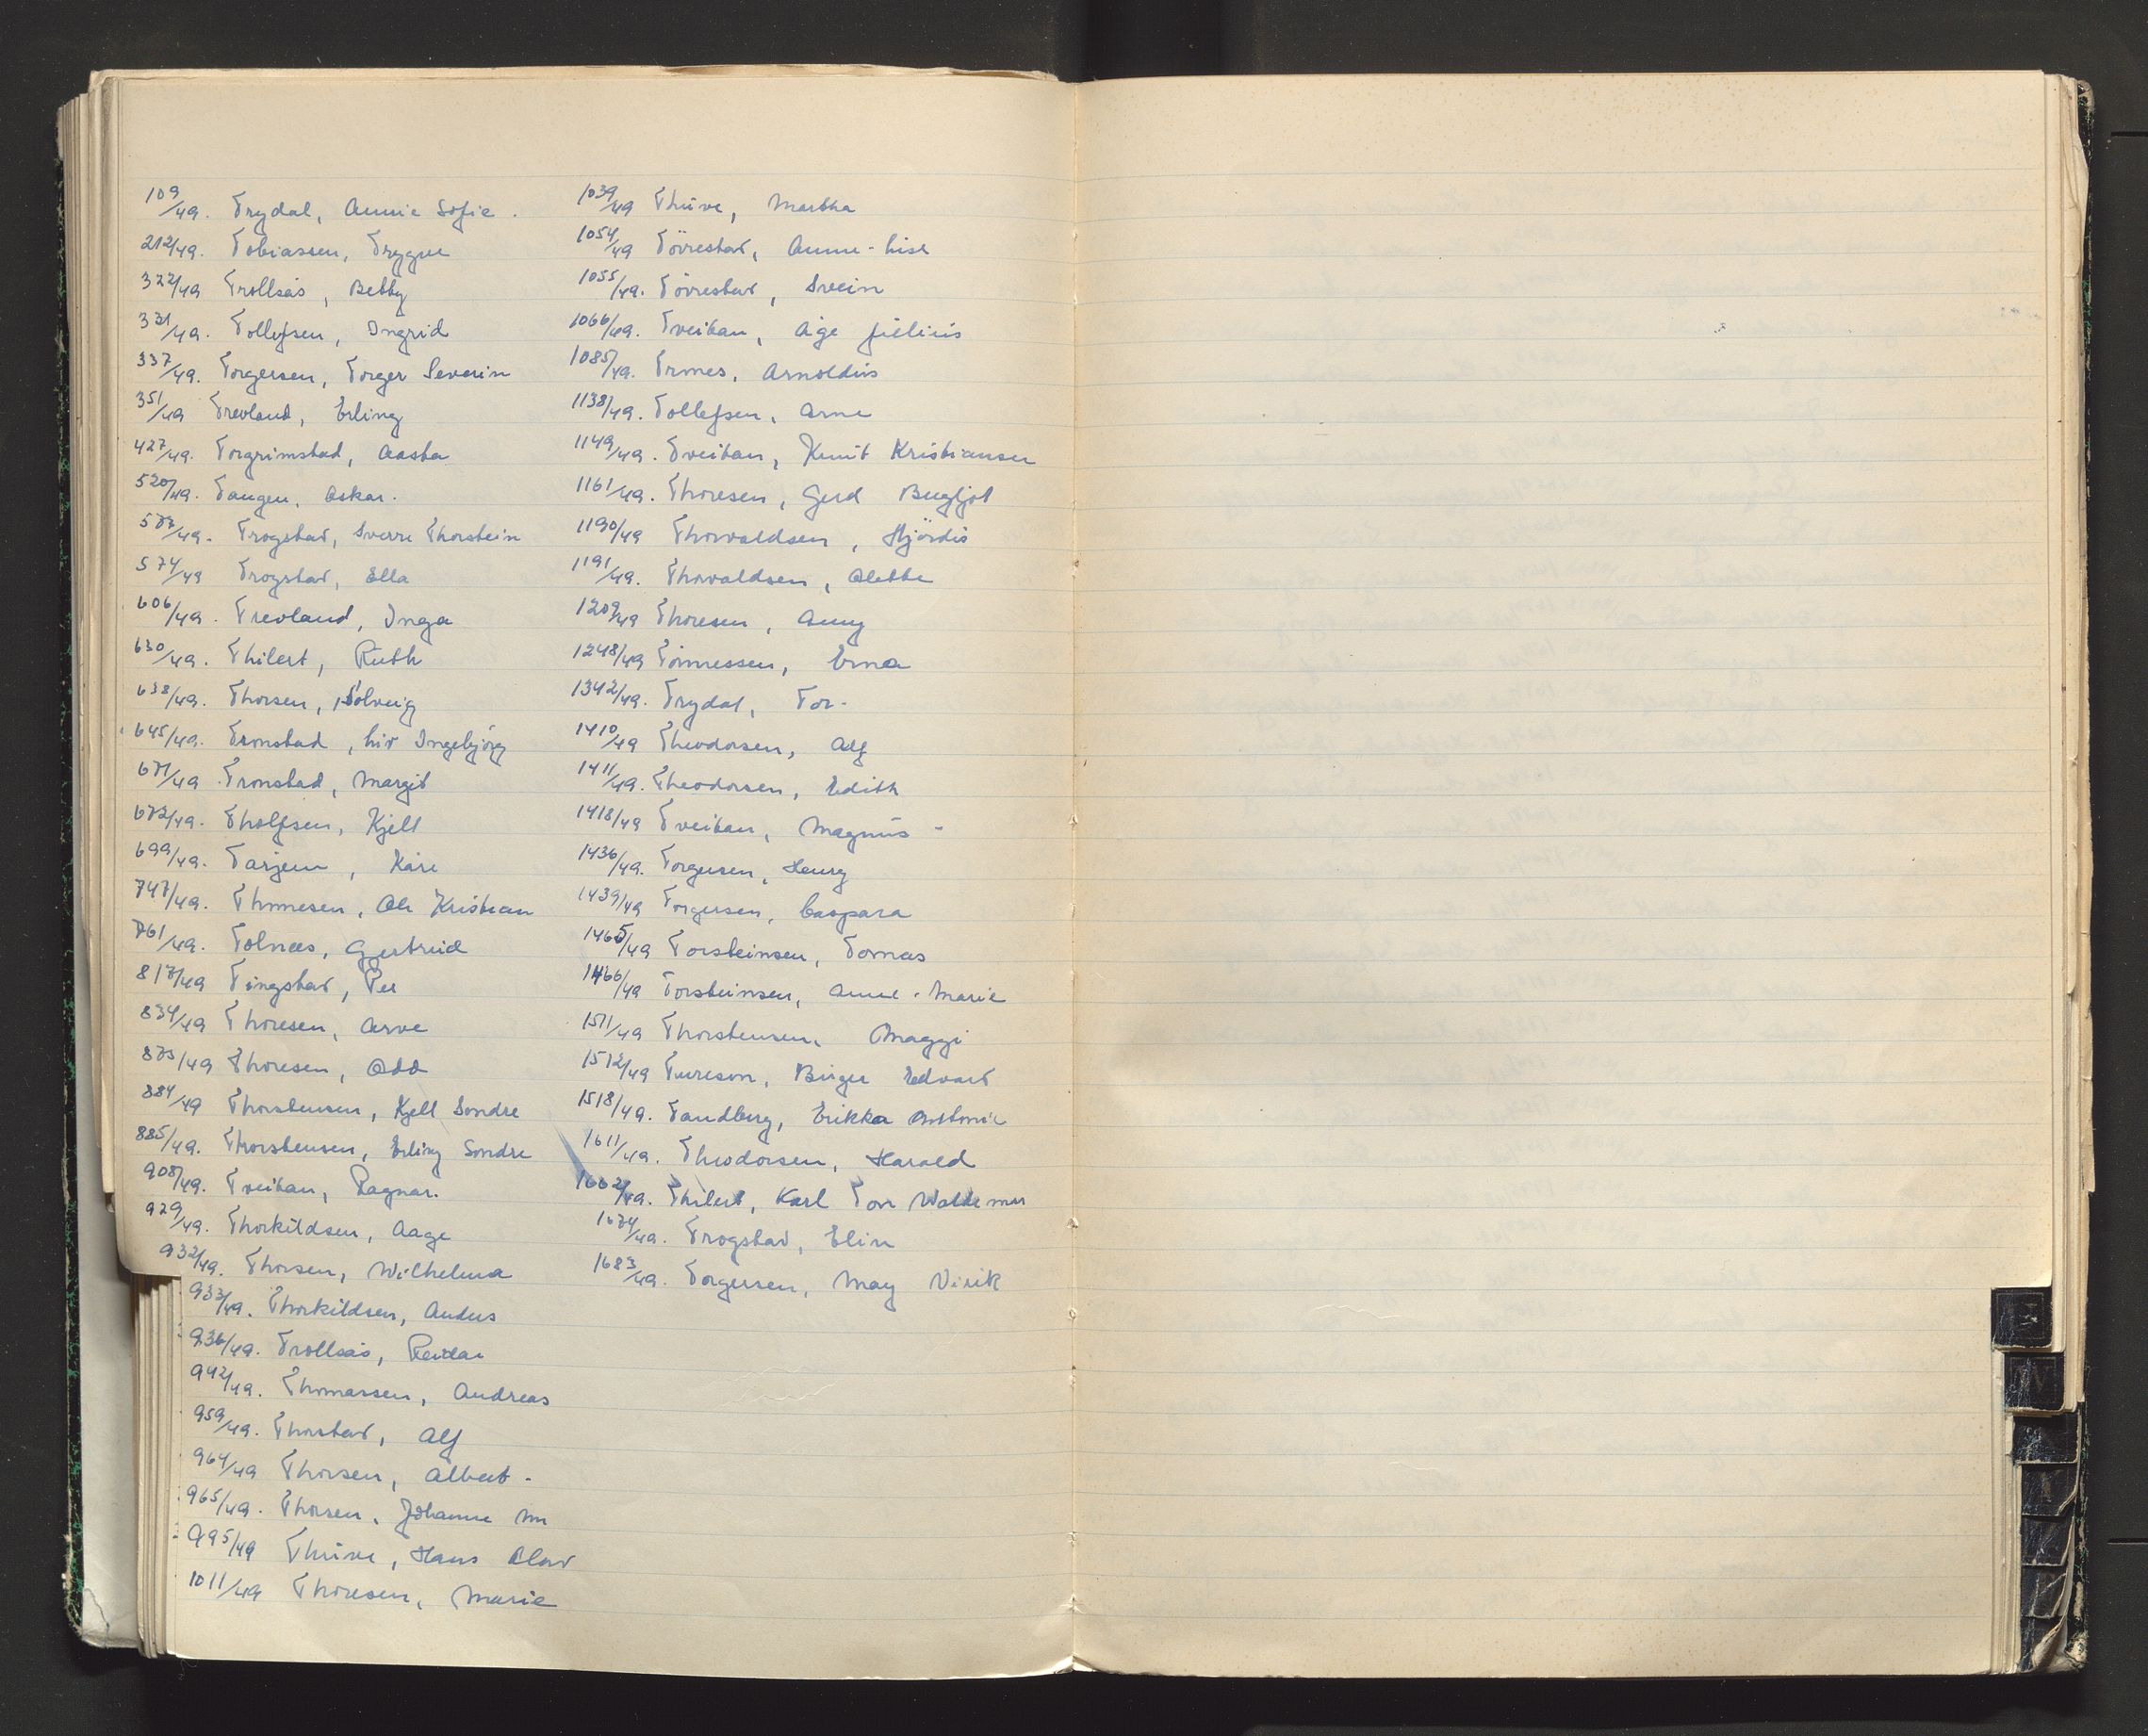 109/49. Trydal, Annie Sofie.
212/49. Tobiassen, Trygve
322/49 Trollsås, Betty
331/49. Tollefsen, Ingrid
337/49. Torgersen, Torger Severin
351/49 Trevland, Erling
427/49. Torgrimstad, Aasta
520/49. Tangen, Oskar.
573/49. Trogstad, Sverre Thorstein
574/49 Trogstad, Ella
606/49. Trevland, Inga
630/49. Thilert, Ruth
638/49. Thorsen, Solveig
645/49. Tronstad, Liv Ingebjörg
671/49 Tronstad, Margit
672/49. Tholfsen, Kjell
699/49. Tarjem, Kåre
747/49. Thomesen, Ole Kristian
761/49. Tolnæs, Gjertrud
817/49 Tingstad, Per
834/49 Thoresen, Arve
875/49 Thoresen, Odd
884/49 Thorstensen, Kjell Sondre
885/49. Thorstensen, Erling Sondre
908/49. Tveitan, Ragnar.
929/49. Thorkildsen, Aage
932/49. Thorsen, Wilhelma
933/49. Thorkildsen, Anders
936/49. Trollsås, Reidar
942/49. Thomassen, Andreas
959/49. Thorstad, Alf
964/49 Thorsen, Albert.
965/49. Thorsen, Johanne
995/49 Thrive, Hans Olav
1011/49 Thoresen, Marie
1039/49 Thrive, Martha
1054/49 Törrestad, Anne-Lise
1055/49. Törrestad, Svein
1066/49. Tveitan, Åge Julius
1085/49. Tromes, Arnoldus
1138/49. Tollefsen, Arne
1149/49. Tveitan, Knut Kristiansen
1161/49. Thoresen, Gerd Bergljot
1190/49 Thorvaldsen, Hjördis
1191/49. Thorvaldsen, Alette
1209/49 Thoresen, Anny
1248/49 Tönnessen, Erna
1342/49. Trydal, Tor.
1410/49 Theodorsen, Alf
1411/49. Theodorsen, Edith
1418/49 Tveitan, Magnus
1436/49. Torgersen, Henry
1439/49 Torgersen, Caspara
1465/49 Torsteinsen, Tomas
1466/49 Torsteinsen, Anne-Marie
1511/49 Thorstensen, Maggi
1512/49 Tureson, Birger Edvard
1518/49. Tandberg, Erikka Antonie
1611/49. Theodorsen, Harald
1662/49. Thilert, Karl Tore Waldemar
1674/49. Trogstad, Elin
1683/49. Torgersen, May Virik